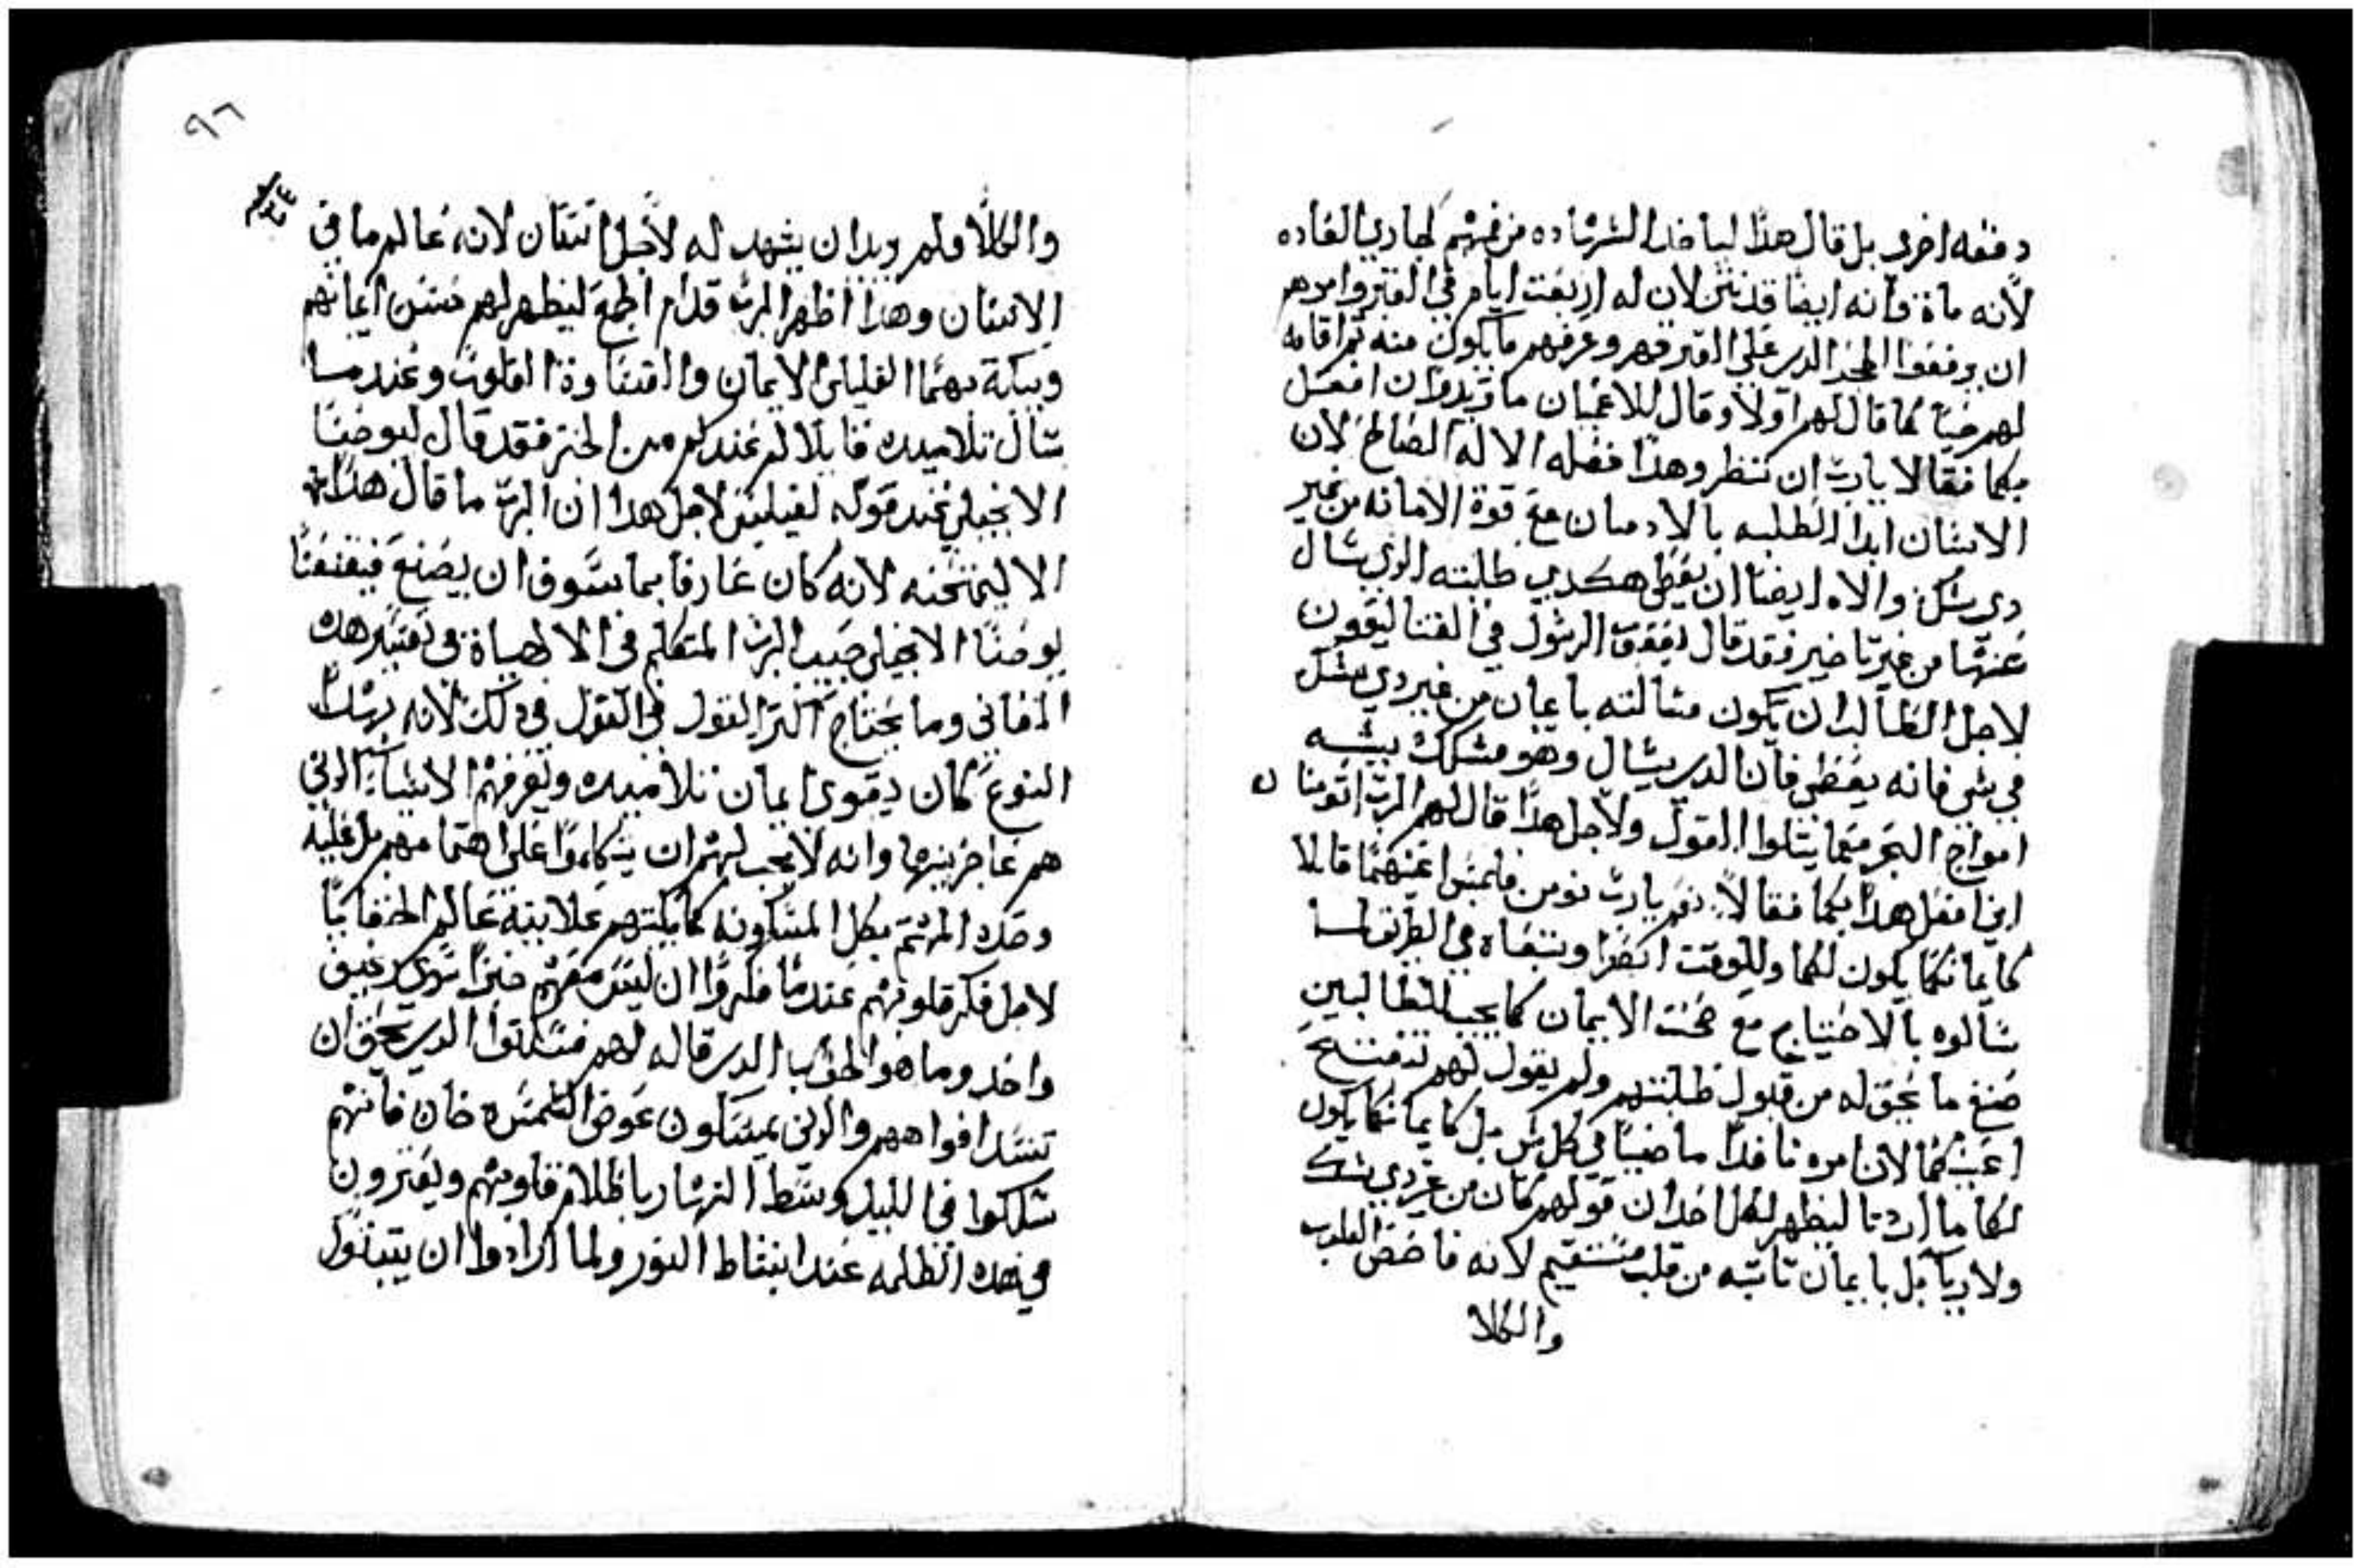 دفعه اخرى بل قال هذا لياخذ الشهاده من فمهم كجاري العاده
لانه ماة وانه ايضا قد نتن لان له اربعت ايام في القبر وامرهم
ان يرفعوا الحجر الدي على القبر وعرفهم ما يكون منه ثم اقامه
لهم حيا كما قال لهم اولا وقال للاعميان ما تريدوا ان افعل
بكما فقالا يارب ان ننظر وهذا فعله الاله الصالح لان
الانسان ابدا الطلبه بالادمان مع قوة الامانه من غير
دي شك والاه ايضا ان يعطى هكدي طلبته الدي يسال
عنها من غير تاخير فقد قال يعقوب الرسول في
لاجل الطالب ان يكون مسالته بايمان من غير دي شك
في شي فانه يعطى فان الدي يسال وهو مشكك يشبه
امواج البحر وما يتلوا القول ولاجل هذا قال لهم الرب اتومنا
اني افعل هدا بكما فقالا نعم يارب نومن فلمس اعينهما قايلا
كايمانكما يكون لكما وللوقت ابصرا وتبعاه في الطريق لما
سالوه بالاحتياج مع صحت الايمان كما يجب للطالبين
صنع ما يحق له من قبول طلبتهم ولم يقول لهم تنفتح
اعينكما لان امره نافدا ماضيا في كل شي بل كايمانكما يكون
لكما ما اردتا ليظهر لكل احد ان قولهم كان من غير دي شك
ولا ريا بل بايمان تابته من قلب مستقيم لانه فاحص القلوب
والكلا
٩٦
والكلا ولم يريد ان يشهد له لاجل انسان لانه عالم ما في
الانسان وهذا اظهر الرب قدام الجمع ليظهر لهم حسن ايمانهم
ويبكت بهما القليلى الايمان والقساوة القلوب وعند ما
سال تلاميده قايلا كم عندكم من الخبز فقد قال ليوحنا
الانجيلي عند قوله لفيلبس لاجل هدا ان الرب ما قال هذا
الا ليمتحنه لانه كان عارفا بما سوف ان يصنع فيقنعنا
يوحنا الانجيلي حبيب الرب المتكلم في الالاهياة في تفسير هده
المعاني وما يحتاج اكتر القول في القول في دلك لانه بهدا
النوع كان يقوي ايمان تلاميده ويعرفهم الاشيا الدي
هم عاجزين بها وانه لا يجب لهم ان يتكلوا على اهتمامهم بل عليه
وحده المهتم بكل المسكونه كما بكتهم علانية عالم الخفايا
لاجل فكر قلوبهم عندما فكروا ان ليس معهم خبزا سوى رغيف
واحد وما هو الجواب الدي قاله لهم فسكتوا الدي يحق ان
تنسد افواههم والدي يمسكون عوض الخمسه خان فانهم
سلكوا في الليل وسط النهار باظلام قلوبهم ويعترون
في هده الظلمه عند انبساط النور ولما ارادوا ان يتناول